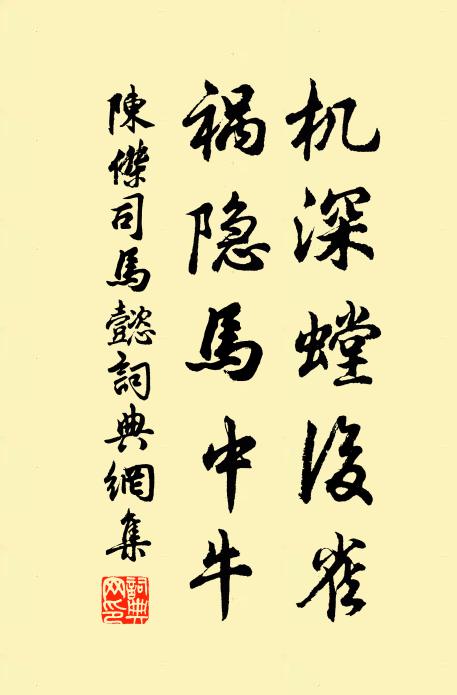 机深螳後雀
祸隐馬中牛
陳傑司馬懿詞典網集
詞典网印